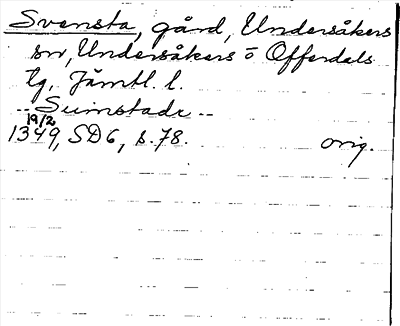 Svensta, gård, Undersåkers
sn, Undersåkers o Offerdals
tg, Jämtl. l.
-- Suinstadr --
19/2
1349, SD6, s. 78. orig.